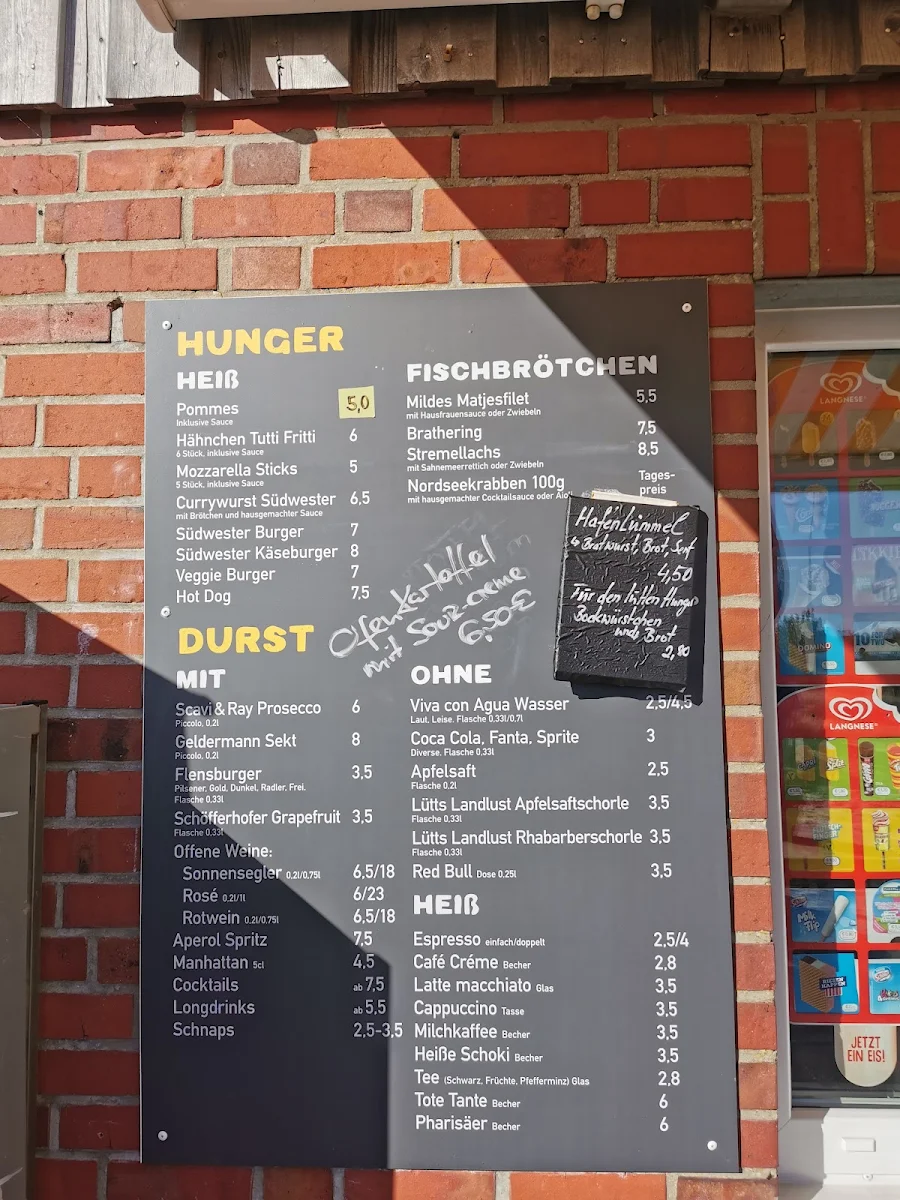 HUNGER
HEIß
Pommes 5,0
Inklusive Sauce
Hähnchen Tutti Fritti 6
6 Stück, inklusive Sauce
Mozzarella Sticks 5
5 Stück, inklusive Sauce
Currywurst Südwester 6,5
mit Brötchen und hausgemachter Sauce
Südwester Burger 7
Südwester Käseburger 8
Veggie Burger 7
Hot Dog 7,5
FISCHBRÖTCHEN
Mildes Matjesfilet 5,5
mit Hausfrauensauce oder Zwiebeln
Brathering 7,5
Stremellachs 8,5
mit Sahnemeerrettich oder Zwiebeln
Nordseekrabben 100g Tages-
preis
mit hausgemachter Cocktailsauce oder
Ofenkartoffel
mit Sour-Creme
6,50€
Hafenlümmel
↳ Bratwurst, Brot, Senf
4,50
Für den lütten Hunger
Bockwürstchen
und Brot
2,80
DURST
MIT
Scavi & Ray Prosecco 6
Piccolo, 0,2l
Geldermann Sekt 8
Piccolo, 0,2l
Flensburger 3,5
Pilsener, Gold, Dunkel, Radler, Frei.
Flasche 0,33l
Schöfferhofer Grapefruit 3,5
Flasche 0,33l
Offene Weine:
Sonnensegler 0,2l/0,75l 6,5/18
Rosé 0,2l/1l 6/23
Rotwein 0,2l/0,75l 6,5/18
Aperol Spritz 7,5
Manhattan 5cl 4,5
Cocktails ab 7,5
Longdrinks ab 5,5
Schnaps 2,5-3,5
OHNE
Viva con Agua Wasser 2,5/4,5
Laut, Leise, Flasche 0,33l/0,7l
Coca Cola, Fanta, Sprite 3
Diverse, Flasche 0,33l
Apfelsaft 2,5
Flasche 0,2l
Lütts Landlust Apfelsaftschorle 3,5
Flasche 0,33l
Lütts Landlust Rhabarberschorle 3,5
Flasche 0,33l
Red Bull Dose 0,25l 3,5
HEIß
Espresso einfach/doppelt 2,5/4
Café Créme Becher 2,8
Latte macchiato Glas 3,5
Cappuccino Tasse 3,5
Milchkaffee Becher 3,5
Heiße Schoki Becher 3,5
Tee (Schwarz, Früchte, Pfefferminz) Glas 2,8
Tote Tante Becher 6
Pharisäer Becher 6
LANGNESE
DOMINO
LANGNESE
Milk
Flip
JETZT
EIN EIS!